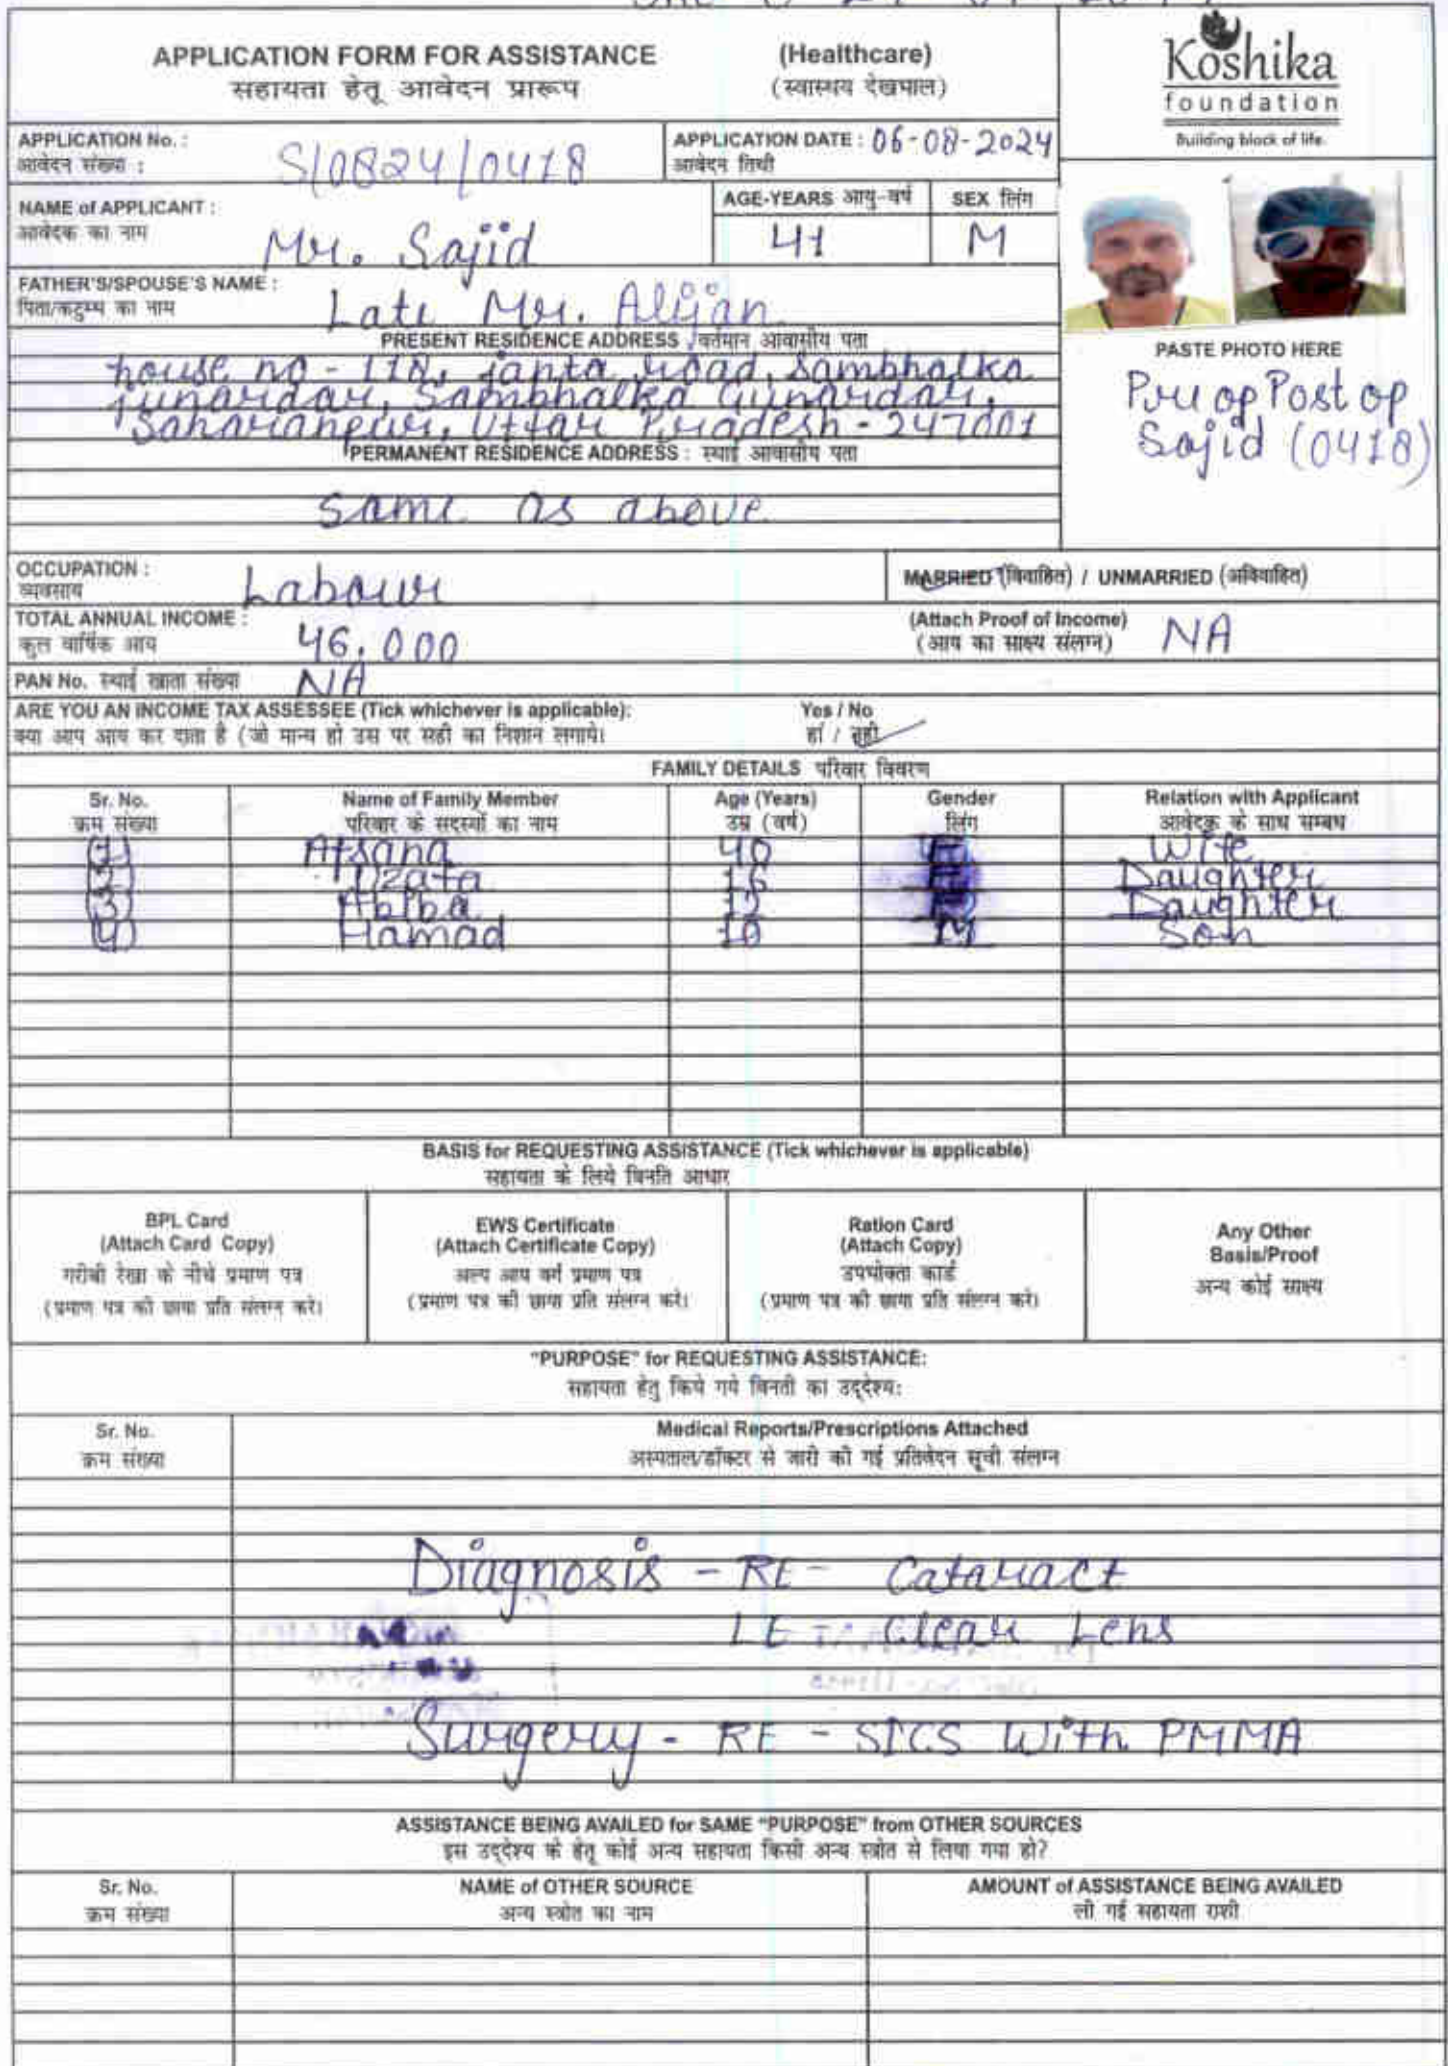 APPLICATION FORM FOR ASSISTANCE
सहायता हेतू आवेदन प्रारूप
(Healthcare)
(स्वास्थय देखभाल)
Koshika
foundation
Building block of life.
APPLICATION No. :
आवेदन संख्या :
S/0824/0418
APPLICATION DATE : 06-08-2024
आवेदन तिथी
NAME of APPLICANT :
आवेदक का नाम
Mr. Sajid
AGE-YEARS आयु-वर्ष
41
SEX लिंग
M
FATHER'S/SPOUSE'S NAME :
पिता/कटुम्ब का नाम
Late Mr. Alijan
PASTE PHOTO HERE
Pre op Post op
Sajid (0418)
PRESENT RESIDENCE ADDRESS वर्तमान आवासीय पता
house no - 118, janta road, Sambhalka
Gunardar, Sambhalka Gunardar,
Saharanpur, Uttar Pradesh - 247001
PERMANENT RESIDENCE ADDRESS : स्थाई आवासीय पता
Same as above
OCCUPATION :
व्यवसाय
Labour
MARRIED (विवाहित) / UNMARRIED (अविवाहित)
TOTAL ANNUAL INCOME :
कुल वार्षिक आय
46,000
(Attach Proof of Income)
(आय का साक्ष्य संलग्न)
NA
PAN No. स्थाई खाता संख्या
NA
ARE YOU AN INCOME TAX ASSESSEE (Tick whichever is applicable):
Yes / No
क्या आप आय कर दाता है (जो मान्य हो उस पर सही का निशान लगाये।
हां / नहीं
FAMILY DETAILS परिवार विवरण
Sr. No. Name of Family Member Age (Years) Gender Relation with Applicant
क्रम संख्या परिवार के सदस्यों का नाम उम्र (वर्ष) लिंग आवेदक के साथ सम्बध
(1) Afsana 40 Wife
(2) 16 Daughter
(3) 12 Daughter
(4) Hamad 10 M Son
BASIS for REQUESTING ASSISTANCE (Tick whichever is applicable)
सहायता के लिये विनति आधार
BPL Card
(Attach Card Copy)
गरीबी रेखा के नीचे प्रमाण पत्र
(प्रमाण पत्र की छाया प्रति संलग्न करे।
EWS Certificate
(Attach Certificate Copy)
अल्प आय वर्ग प्रमाण पत्र
(प्रमाण पत्र की छाया प्रति संलग्न करे।
Ration Card
(Attach Copy)
उपभोक्ता कार्ड
(प्रमाण पत्र की छाया प्रति संलग्न करे।
Any Other
Basis/Proof
अन्य कोई साक्ष्य
"PURPOSE" for REQUESTING ASSISTANCE:
सहायता हेतु किये गये विनती का उद्देश्य:
Sr. No. Medical Reports/Prescriptions Attached
क्रम संख्या अस्पताल/डॉक्टर से जारी की गई प्रतिवेदन सूची संलग्न
Diagnosis - RE - Cataract
LE Clear Lens
Surgery - RE - SICS With PMMA
ASSISTANCE BEING AVAILED for SAME "PURPOSE" from OTHER SOURCES
इस उद्देश्य के हेतू कोई अन्य सहायता किसी अन्य स्त्रोत से लिया गया हो?
Sr. No. NAME of OTHER SOURCE AMOUNT of ASSISTANCE BEING AVAILED
क्रम संख्या अन्य स्त्रोत का नाम ली गई सहायता राशी